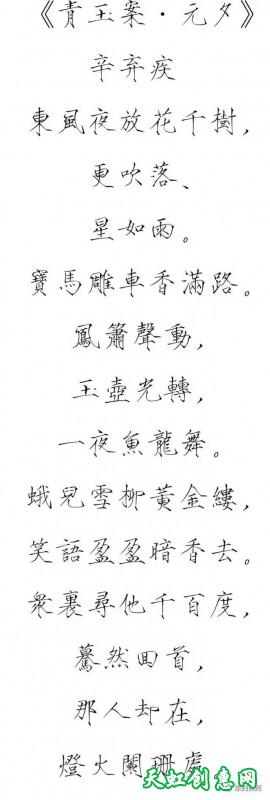 《青玉案·元夕》
辛弃疾
東風夜放花千樹，
更吹落、
星如雨。
寶馬雕車香滿路。
鳳簫聲動，
玉壺光轉，
一夜魚龍舞。
蛾兒雪柳黃金縷，
笑語盈盈暗香去。
衆裏尋他千百度，
驀然回首，
那人却在，
燈火闌珊處
天虹创意网